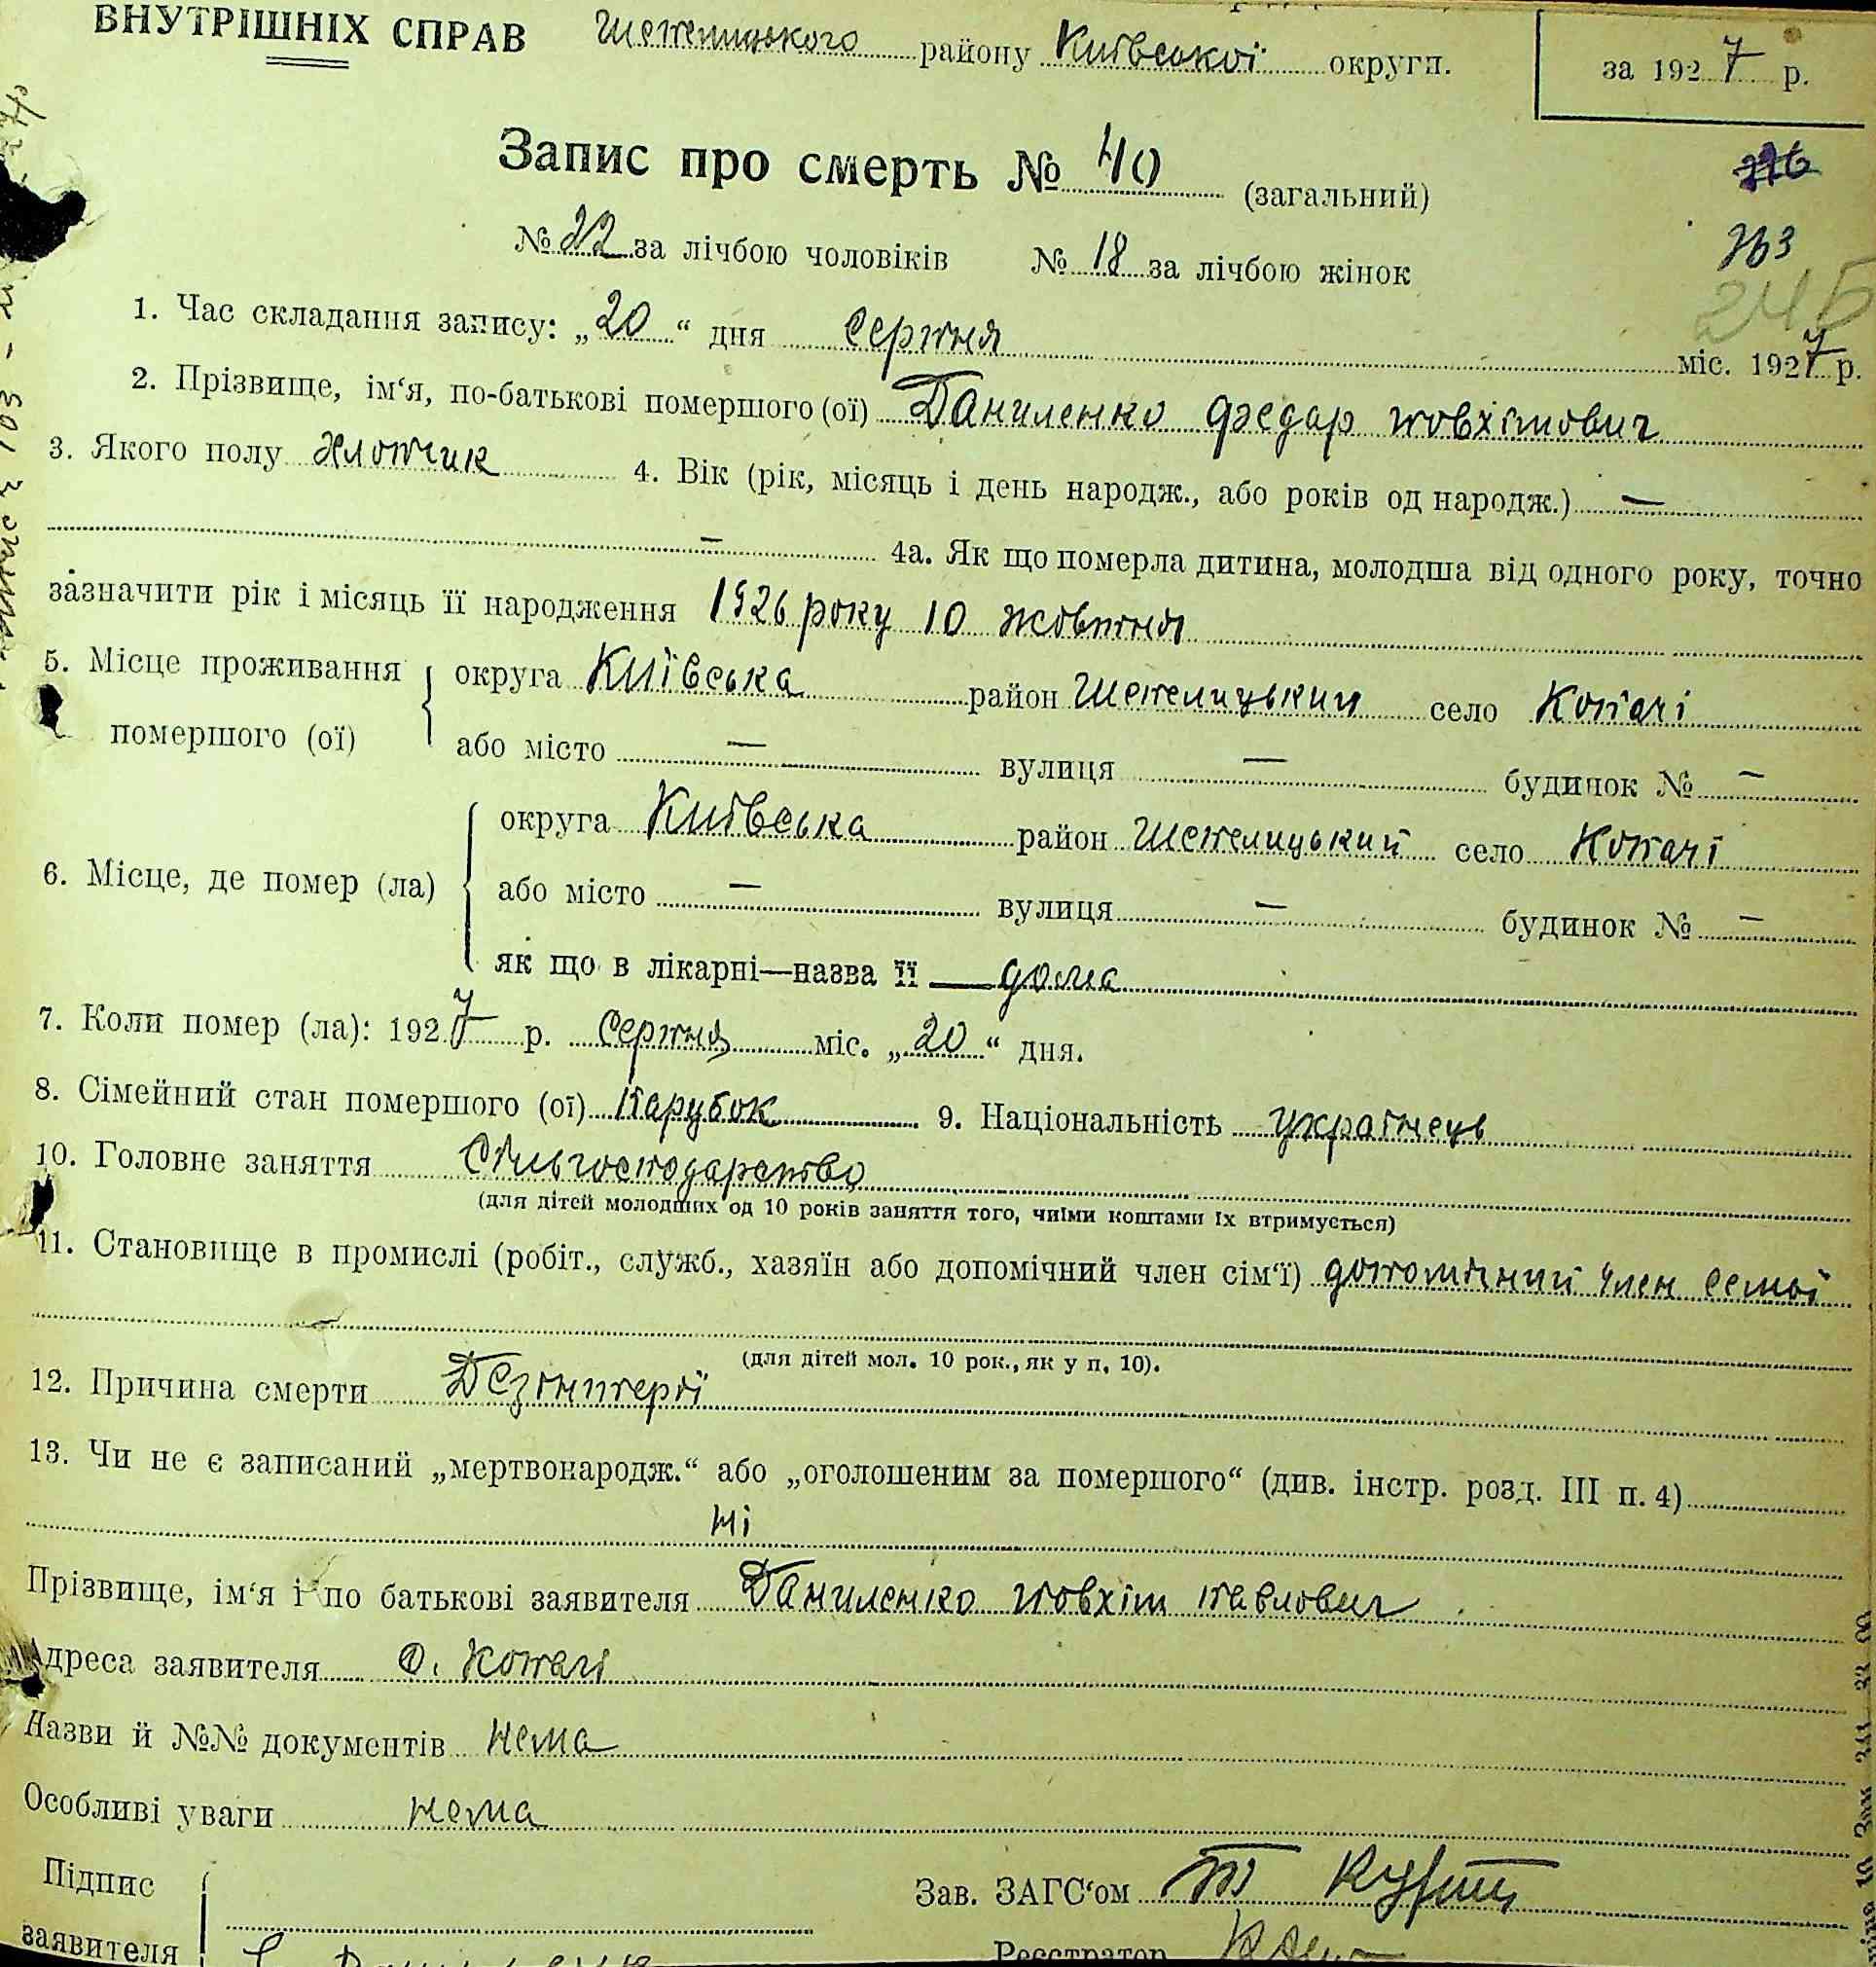 ВНУТРІШНІХ СПРАВ Шепелицького району Київської округи.
за 1927 р.
Запис про смерть № 40 (загальний)
226
№ 22 за лічбою чоловіків № 18 за лічбою жінок
263
245
1. Час складання запису: „20“ дня Серпня міс. 1927 р.
2. Прізвище, ім‘я, по-батькові помершого (ої) Даниленко Федар Йовхімович
3. Якого полу хлопчик 4. Вік (рік, місяць і день народж., або років од народж.) —
— 4а. Як що померла дитина, молодша від одного року, точно
зазначити рік і місяць її народження 1926 року 10 жовтня
5. Місце проживання помершого (ої) округа Київська район Шепелицький село Копачі
або місто — вулиця — будинок № —
6. Місце, де помер (ла) округа Київська район Шепелицький село Копачі
або місто — вулиця — будинок № —
як що в лікарні—назва її — дома
7. Коли помер (ла): 1927 р. Серпня міс. „20“ дня.
8. Сімейний стан помершого (ої) Парубок 9. Національність українець
10. Головне заняття Сільгосподарство
(для дітей молодших од 10 років заняття того, чиїми коштами їх втримується)
11. Становище в промислі (робіт., служб., хазяїн або допомічний член сім‘ї) допомічний член семьї
(для дітей мол. 10 рок., як у п. 10).
12. Причина смерти Дезінтерії
13. Чи не є записаний „мертвонародж.“ або „оголошеним за помершого“ (див. інстр. розд. III п. 4)
ні
Прізвище, ім‘я і по батькові заявителя Даниленко Йовхім Павлович
Адреса заявителя с. Копачі
Назви й №№ документів нема
Особливі уваги нема
Підпис заявителя
Зав. ЗАГС‘ом
Реєстратор